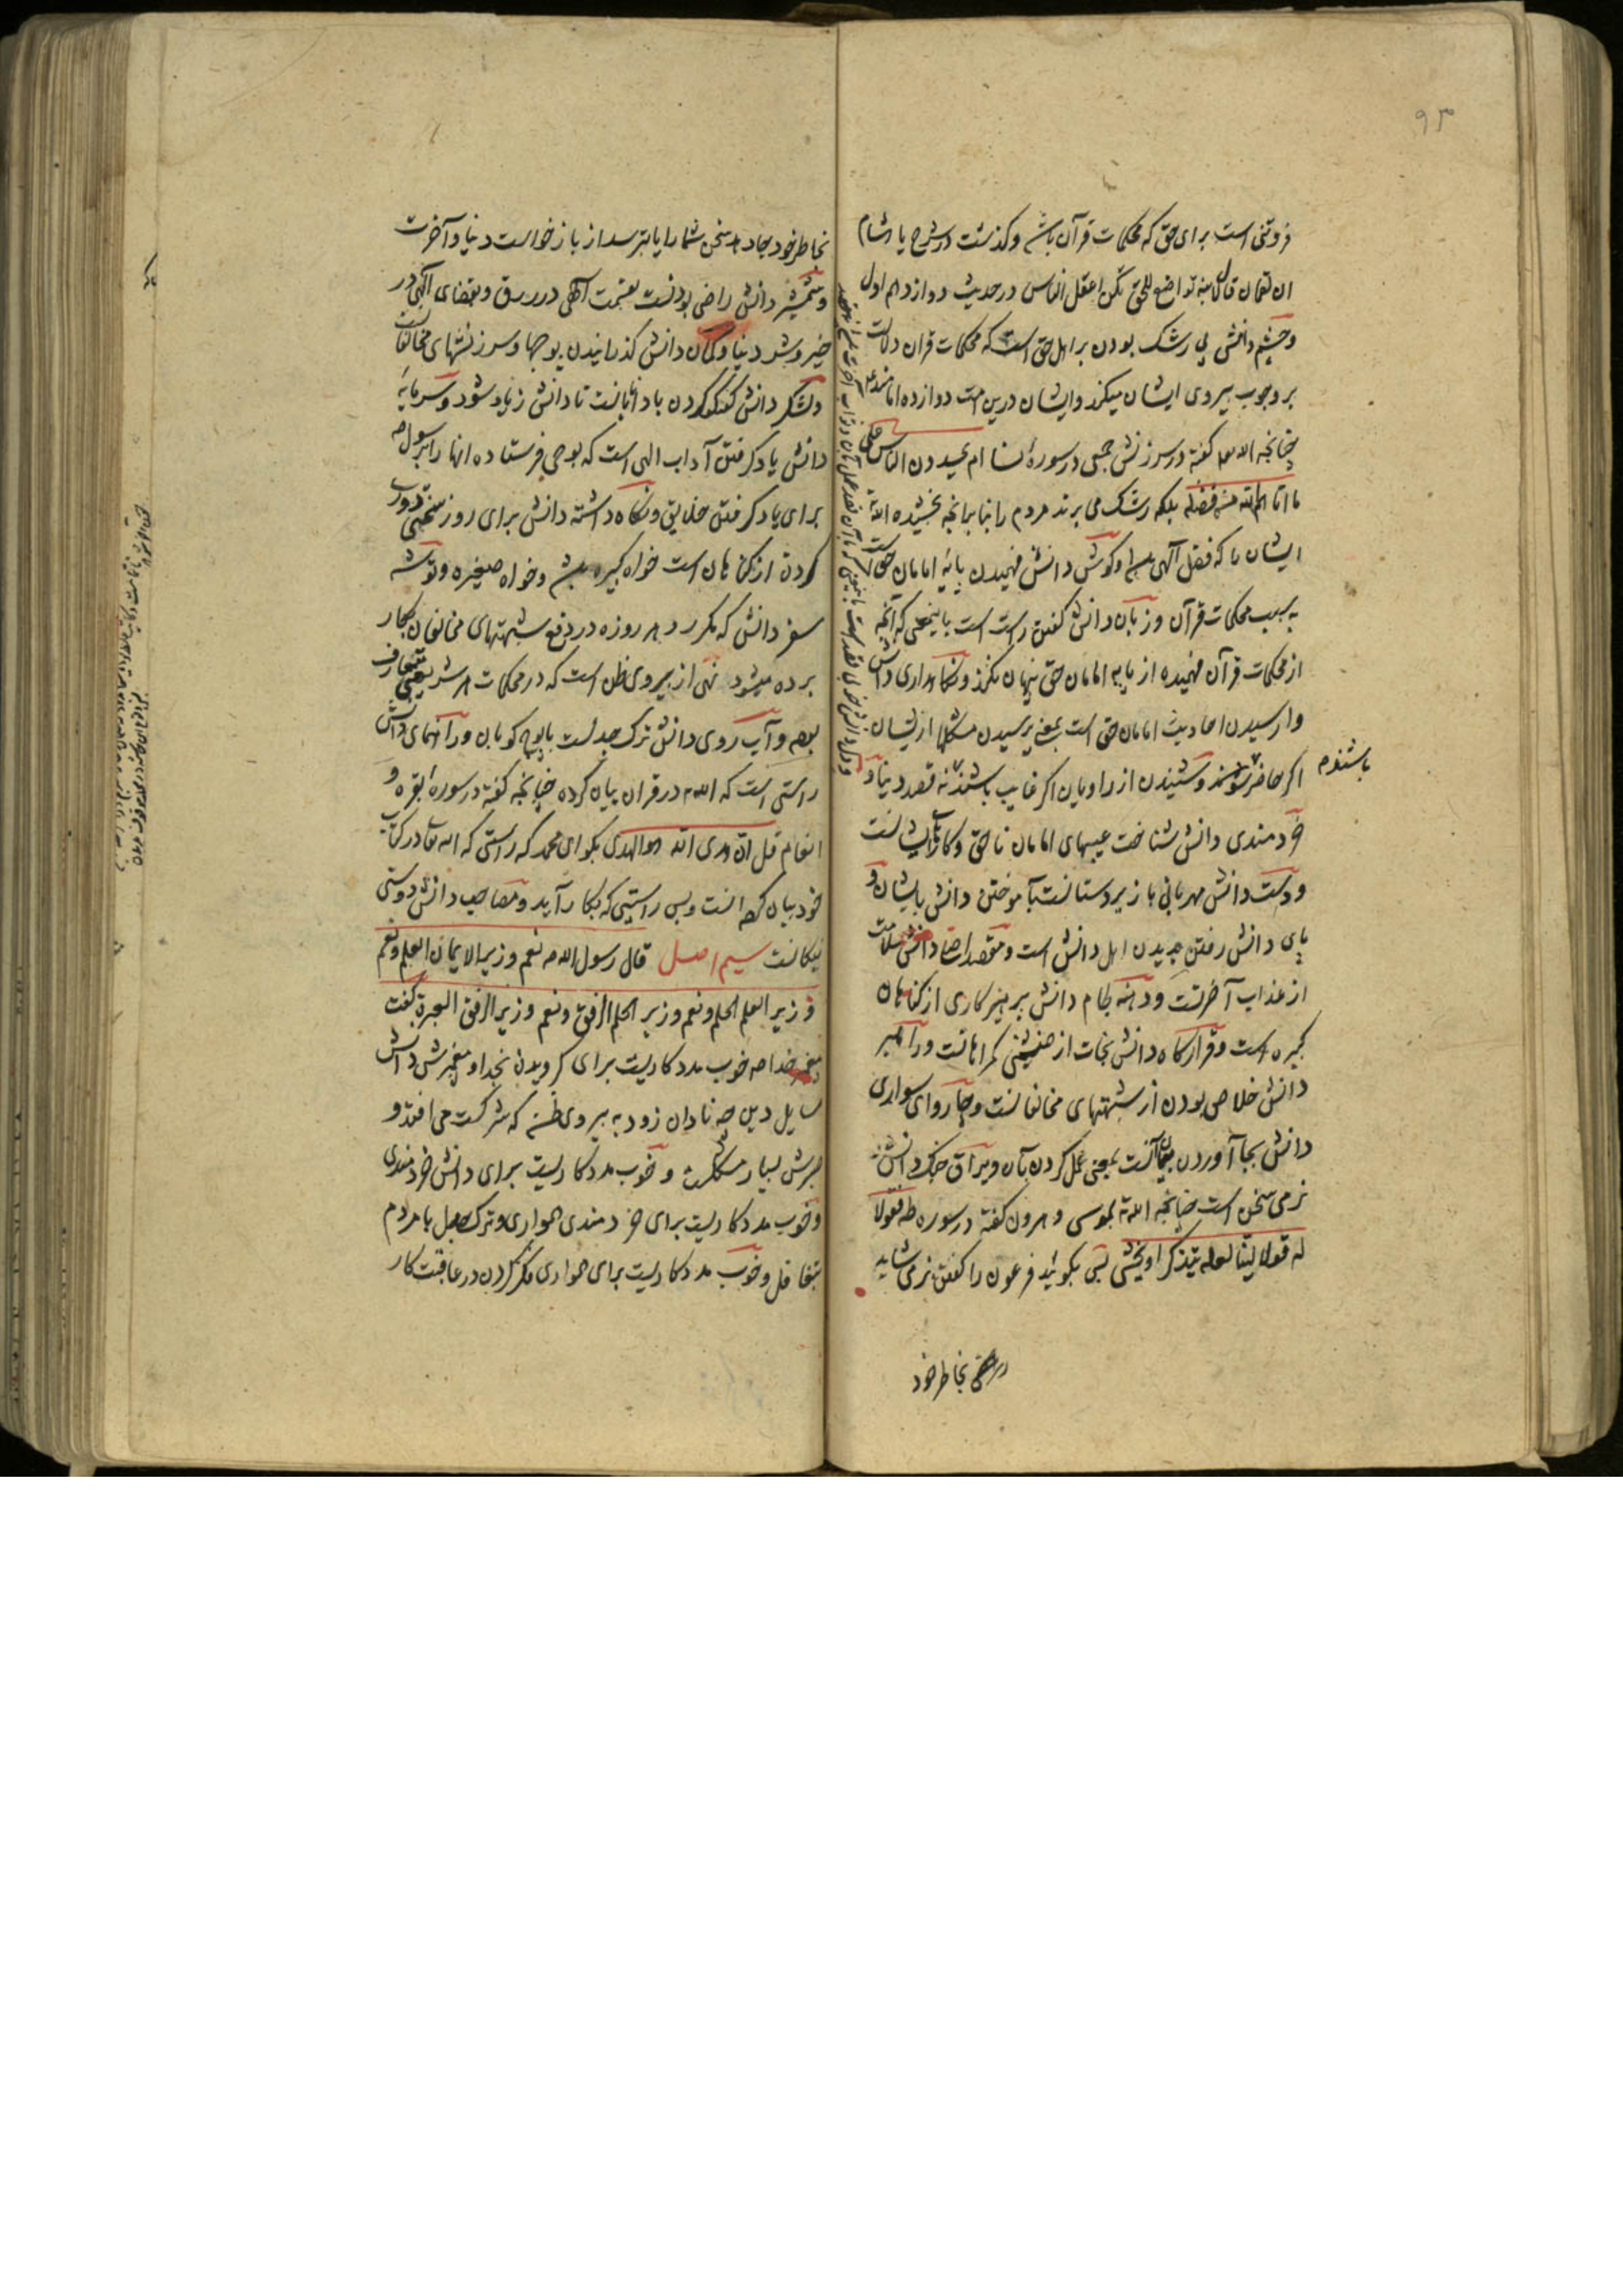 ۹۳
فروتنی است برای حق که محکمات قرآن باشد و گذشت در شرح یا هشام
ان لقمان قال لابنه تواضع للحق تکن اعقل الناس در حدیث دوازدهم اول
و چشم دانش بی رشک بودن بر اهل حق است که محکمات قران دلالت
بر وجوب پیروی ایشان میکند و ایشان درین امت دوازده امامند
چنانچه الله گفته در سرزنش جمعی در سوره نسا ام یحسدون الناس علی
ما اتاهم الله من فضله بلکه رشک می برند مردم را بنا بر آنچه بخشیده الله
ایشان را که فضل آلهی است و گوش دانش فهمیدن پایه امامان حق است
به سبب محکمات قرآن و زبان دانش گفتن راست است باینمعنی که آنچه
از محکمات قرآن فهمیده از پایه امامان حق پنهان نکند و نگاهداری دانش
وارسیدن احادیث امامان حق است بمعنی پرسیدن مشکلها از ایشان
اگر حاضر و شنیدن از راویان اگر غایب باشند نه قصد دنیا و
باشند
خردمندی دانش شناخت عیبهای امامان ناحق و کارهای ایشانست
و دست دانش مهربانی با زیردستانست بآموختن دانش بایشان و
پای دانش رفتن بدیدن اهل دانش است و مقصد دانش سلامت
از عذاب آخرتست و دهنه لجام دانش پرهیزکاری از گناهان
کبیره است و قرارگاه دانش نجات از همنشینی گمراهانست و راهبر
دانش خلاص بودن از شبهتهای مخالفانست و چاروای سواری
دانش بجا آوردن پیمانست بمعنی عمل کردن بآن و یراق جنگ دانش
نرمی سخن است چنانچه الله بموسی و هرون گفته در سوره طه فقولا
له قولا لینا لعله یتذکر او یخشی پس بگوئید فرعون را گفتن نرمی شاید
بخاطر خود
بخاطر خود جا دهد سخن شما را یا بترسد از بازخواست دنیا و آخرت
و شمشیر دانش راضی بودنست بقسمت آلهی در رزق و بقضای آلهی در
خیر و شر دنیا و کمان دانش گذرانیدن پوچها و سرزنشهای مخالفان
و لشکر دانش گفتگو کردن با دانایانست تا دانش زیاد شود و سرمایه
دانش یاد گرفتن آداب الهی است که بوحی فرستاده آنها را بر رسول
برای یاد گرفتن خلایق و نگاه داشته دانش برای روز سختی دوری
کردن از گناهان است خواه کبیره باشد و خواه صغیره و توشه
سفر دانش که مکرر در هر روزه در دفع شبهتهای مخالفان بکار
برده میشود نهی از پیروی ظن است که در محکمات هر شریعتی متعارف
بوده و آب روی دانش ترک جدلست با پوچ گویان و راهنمای دانش
راستی است که الله در قران بیان کرده چنانچه گفته در سوره بقره و
انعام قل ان هدی الله هو الهدی بگو ای محمد که راستی که الله در کتاب
خود بیان کرده آنست و بس راستیی که بکار آید و مصاحب دانش دوستی
نیکانست سیم اصل قال رسول الله نعم وزیر الایمان العلم و نعم
وزیر العلم الحلم و نعم وزیر الحلم الرفق و نعم وزیر الرفق العبرة گفت
پیغمبر خدا خوب مددکاریست برای گرویدن بخدا و پیغمبرش دانش
مسایل دین چه نادان زود به پیروی ظن که شرکست می افتد و
بسیار مشکلست و خوب مددکاریست برای دانش خردمندی
و خوب مددکاریست برای خردمندی همواری و ترک جدل با مردم
بتغافل و خوب مددکاریست برای همواری فکر کردن در عاقبت کار